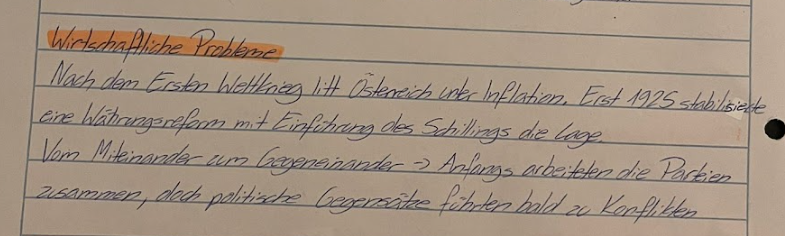 Wirtschaftliche Probleme
Nach dem Ersten Weltkrieg litt Österreich unter Inflation. Erst 1925 stabilisierte
eine Währungsreform mit Einführung des Schillings die Lage.
Vom Miteinander zum Gegeneinander → Anfangs arbeiteten die Parteien
zusammen, doch politische Gegensätze führten bald zu Konflikten